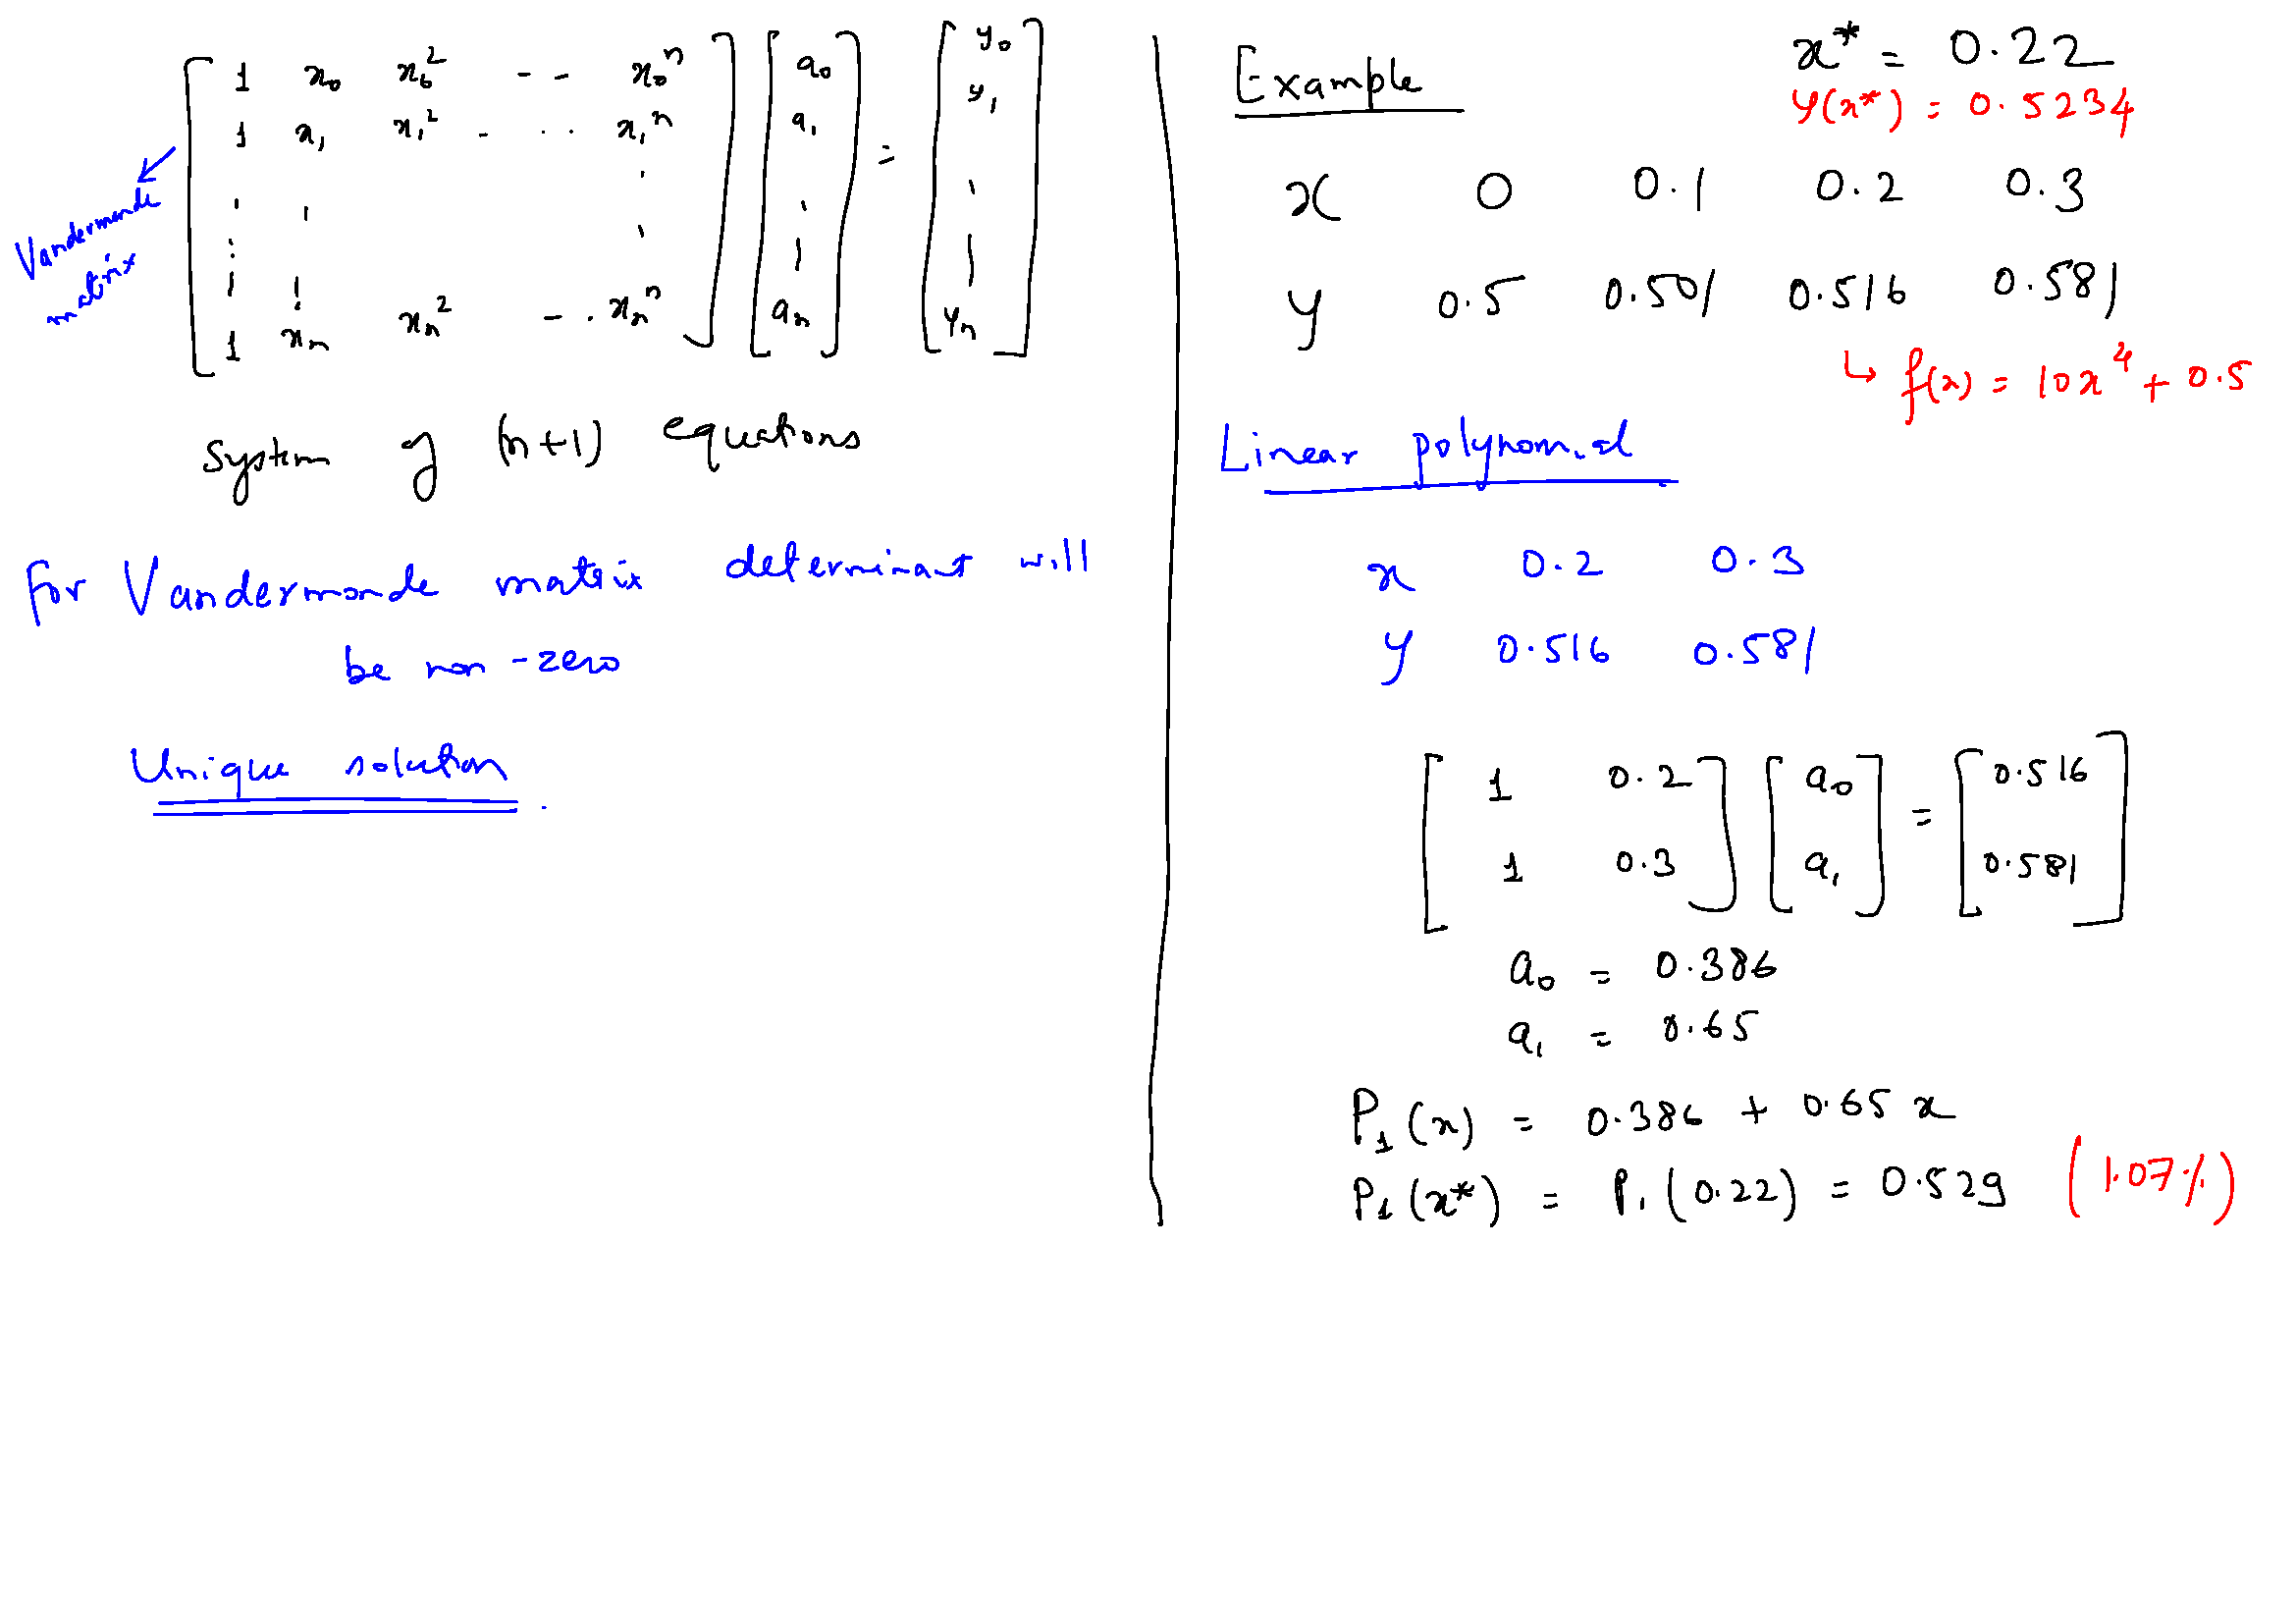 [ 1 x₀ x₀² - - x₀ⁿ ] [ a₀ ] = [ y₀ ]
[ 1 x₁ x₁² - · · · x₁ⁿ ] [ a₁ ] [ y₁ ]
[ 1 xₙ xₙ² - - · xₙⁿ ] [ aₙ ] [ yₙ ]
Vandermonde
matrix
System of (n+1) equations
For Vandermonde matrix determinant will
be non-zero
Unique solution.
Example
x* = 0.22
y(x*) = 0.5234
x 0 0.1 0.2 0.3
y 0.5 0.501 0.516 0.581
↳ f(x) = 10x⁴ + 0.5
Linear polynomial
x 0.2 0.3
y 0.516 0.581
[ 1 0.2 ] [ a₀ ] = [ 0.516 ]
[ 1 0.3 ] [ a₁ ] [ 0.581 ]
a₀ = 0.386
a₁ = 0.65
P₁(x) = 0.386 + 0.65 x
P₁(x*) = P₁(0.22) = 0.529 (1.07%)